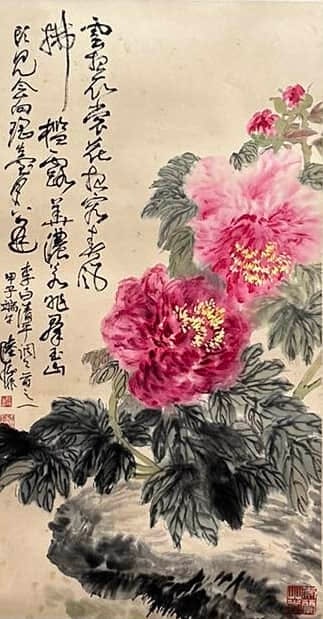 雲想衣裳花想容春風
拂檻露華濃若非羣玉山
頭見會向瑤臺月下逢
李白清平調三首之一
甲子端午